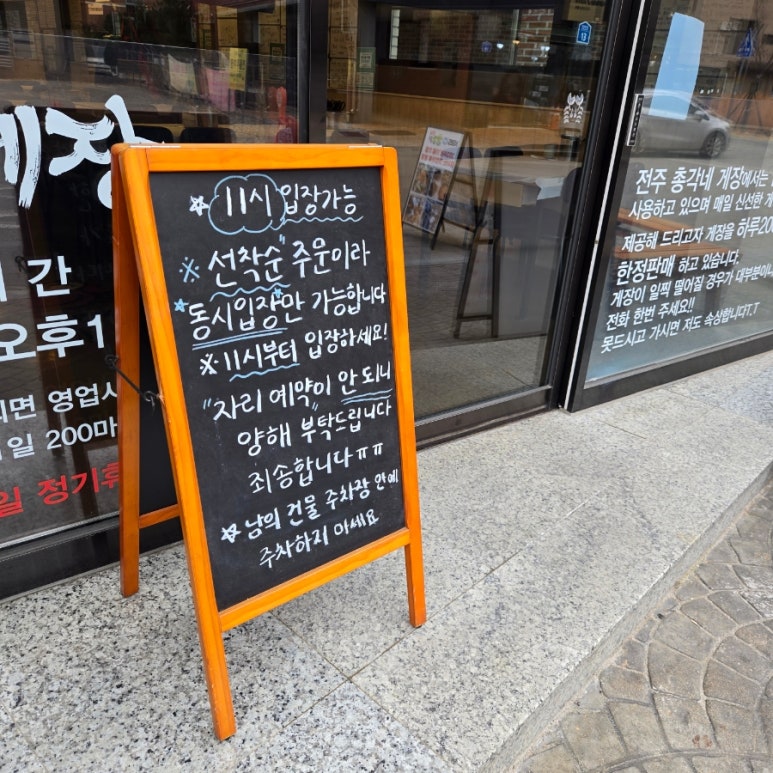 게장
간
오후1
영업시
1일 200마
일 정기휴
★ 11시 입장가능
※ "선착순" 주문이라
★ 동시입장만 가능합니다
※ 11시부터 입장하세요!
"자리 예약"이 안 되니
양해 부탁드립니다
죄송합니다ㅠㅠ
★ 남의 건물 주차장 안에
주차하지 마세요
전주 총각네 게장에서는
사용하고 있으며 매일 신선한 게
제공해 드리고자 게장을 하루200
한정판매 하고 있습니다.
게장이 일찍 떨어질 경우가 대부분이니
전화 한번 주세요!!
못드시고 가시면 저도 속상합니다T.T